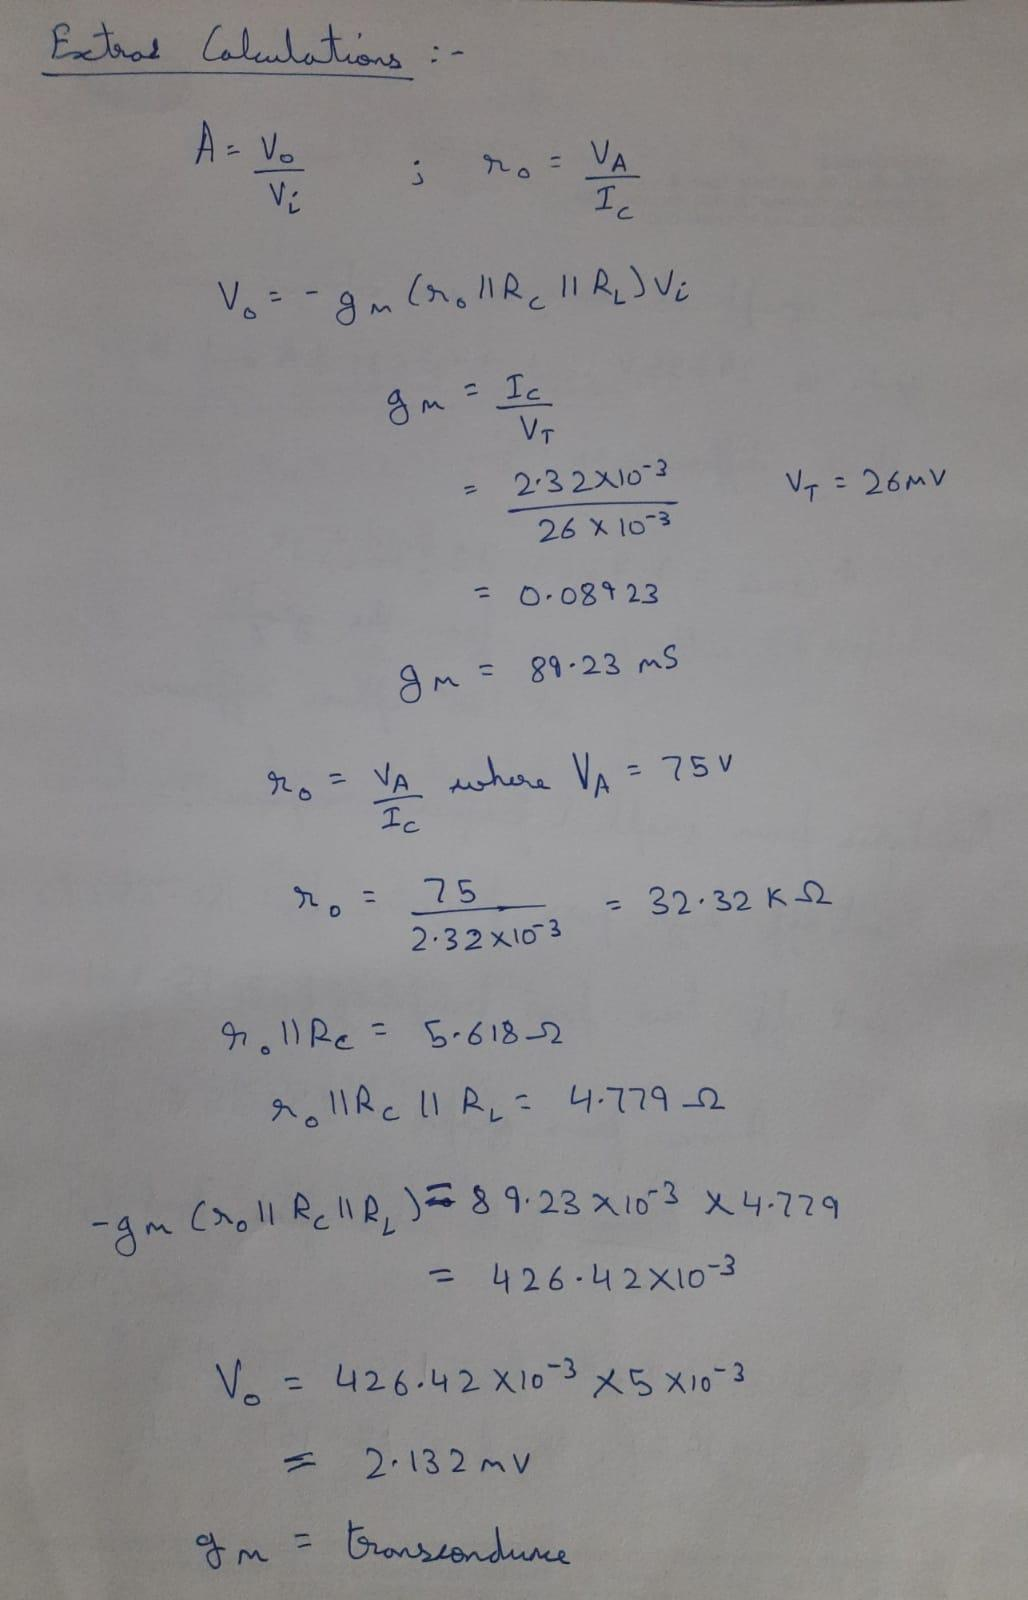 Extras Calculations :-
A = Vo/Vi ; ro = VA/Ic
Vo = - gm (ro || Rc || RL) Vi
gm = Ic/VT
= 2.32×10^-3 / 26 × 10^-3 VT = 26mV
= 0.08923
gm = 89.23 mS
ro = VA/Ic where VA = 75V
ro = 75 / 2.32×10^-3 = 32.32 KΩ
ro || Rc = 5.618 Ω
ro || Rc || RL = 4.779 Ω
-gm (ro || Rc || RL) = 89.23 × 10^-3 × 4.779
= 426.42×10^-3
Vo = 426.42 ×10^-3 × 5 ×10^-3
= 2.132 mV
gm =